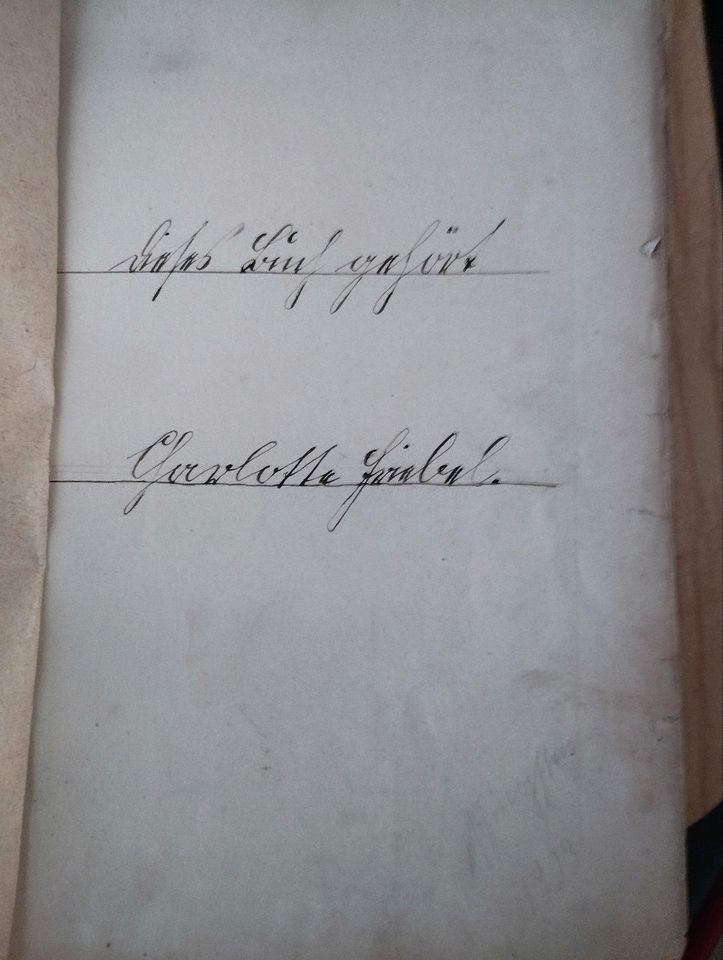 Dieses Buch gehört
Charlotte Friebel.